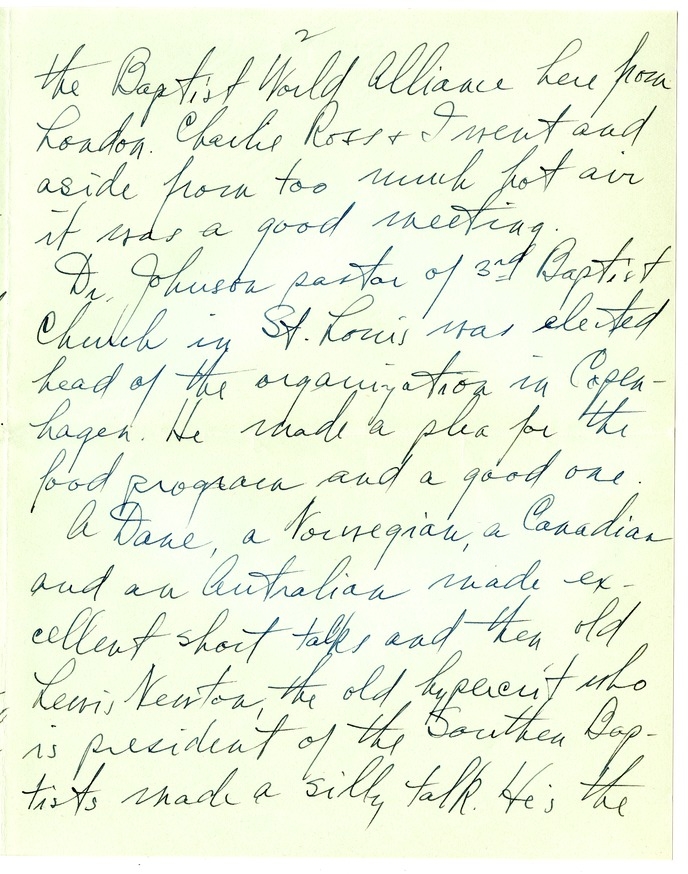 2
the Baptist World Alliance here from
London. Charlie Ross & I went and
aside from too much hot air
it was a good meeting.
Dr. Johnson pastor of 3rd Baptist
Church in St. Louis was elected
head of the organization in Copen-
hagen. He made a plea for the
food program and a good one.
A Dane, a Norwegian, a Canadian
and an Australian made ex-
cellent short talks and then old
Lewis Newton, the old hypercrit who
is president of the Southern Bap-
tists made a silly talk. He's the